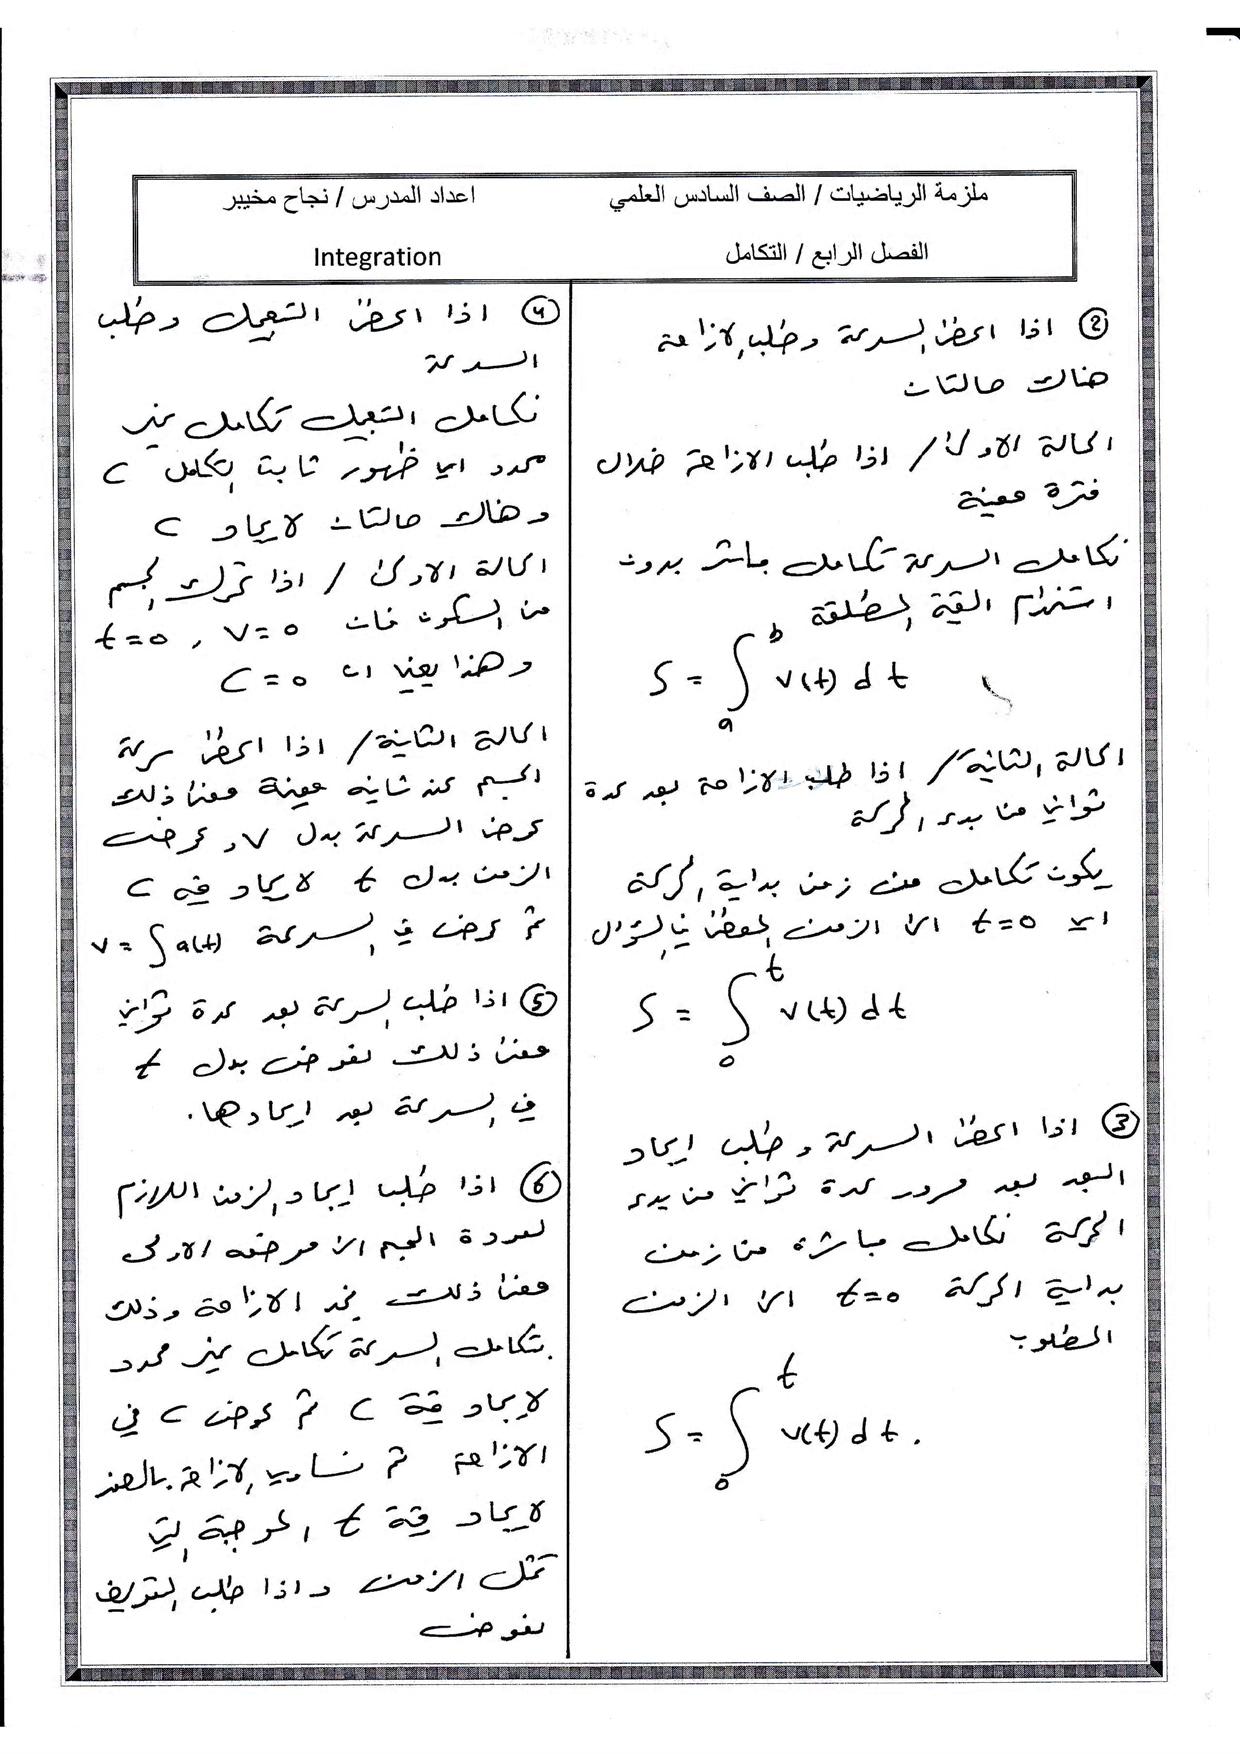 ملزمة الرياضيات / الصف السادس العلمي
اعداد المدرس / نجاح مخيبر
الفصل الرابع / التكامل
Integration
② اذا اعطى السرعة وطلب الازاحة
هناك حالتان
الحالة الاولى / اذا طلب الازاحة خلال
فترة معينة
نكامل السرعة تكامل مباشر بدون
استخدام القيمة المطلقة
S = ∫_a^b v(t) dt
الحالة الثانية / اذا طلب الازاحة بعد عدة
ثواني من بدء الحركة
يكون تكامل من زمن بداية الحركة
اي t=0 الى الزمن المعطى في السؤال
S = ∫_0^t v(t) dt
③ اذا اعطى السرعة وطلب ايجاد
البعد بعد مرور عدة ثواني من بدء
الحركة نكامل مباشرة من زمن
بداية الحركة t=0 الى الزمن
المطلوب
S = ∫_0^t v(t) dt .
④ اذا اعطى التعجيل وطلب
السرعة
نكامل التعجيل تكامل غير
محدد اي ظهور ثابت التكامل C
وهناك حالتان لايجاد C
الحالة الاولى / اذا تحرك الجسم
من السكون فان t=0 , v=0
وهذا يعني ان C=0
الحالة الثانية / اذا اعطى سرعة
الجسم عند ثانية معينة فعند ذلك
نعوض السرعة بدل v ونعوض
الزمن بدل t لايجاد قيمة C
ثم نعوض في السرعة v = ∫a(t)
⑤ اذا طلب السرعة بعد عدة ثواني
فعند ذلك نعوض بدل t
في السرعة بعد ايجادها.
⑥ اذا طلب ايجاد الزمن اللازم
لعودة الجسم الى موضعه الاولى
فعند ذلك نجد الازاحة وذلك
بتكامل السرعة تكامل غير محدد
لايجاد قيمة C ثم نعوض C في
الازاحة ثم نساوي الازاحة بالصفر
لايجاد قيمة t الموجبة التي
تمثل الزمن واذا طلب التعويض
نعوض